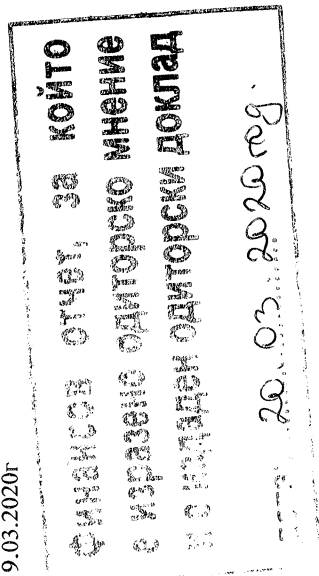 9.03.2020г
Финансов отчет, за който
е изразено одиторско мнение
и е издаден одиторски доклад
20.03.2020 год.